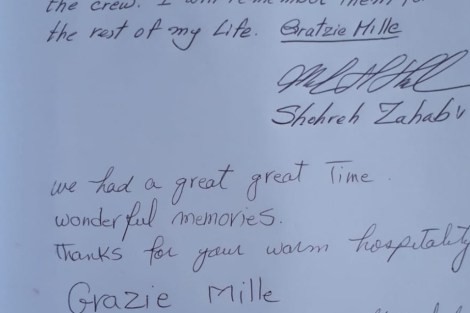 the crew. I will remember them fo
the rest of my Life. Gratzie Mille
Shohreh Zahabi
we had a great great Time.
wonderful memories.
Thanks for your warm hospitality
Grazie Mille